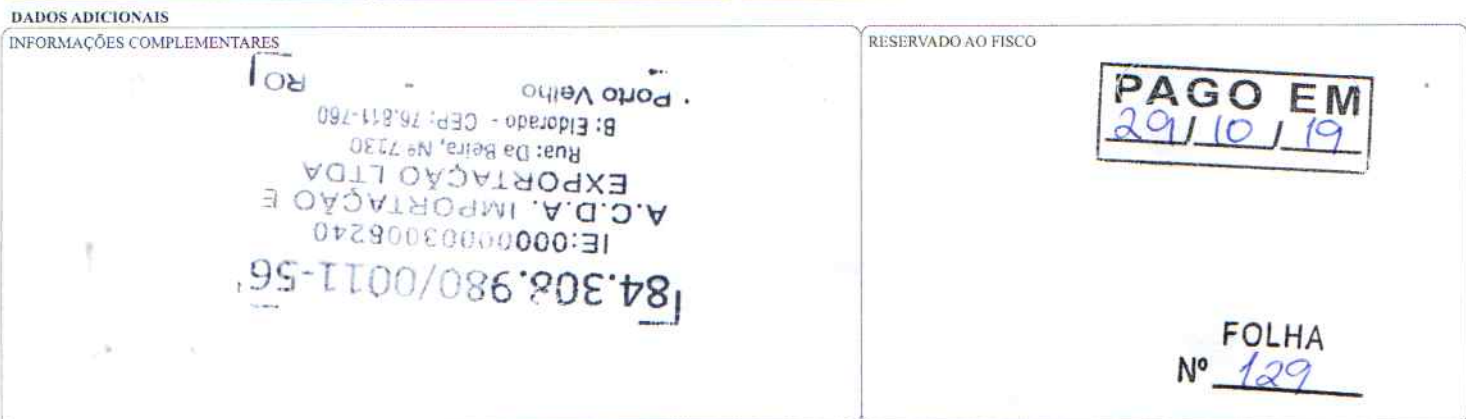 DADOS ADICIONAIS
INFORMAÇÕES COMPLEMENTARES
84.308.980/0011-56
IE:00000003006240
A.C.D.A. IMPORTAÇÃO E
EXPORTAÇÃO LTDA
Rua: Da Beira, Nº 7230
B: Eldorado - CEP: 76.811-760
Porto Velho - RO
RESERVADO AO FISCO
PAGO EM
29/10/19
FOLHA
Nº 129